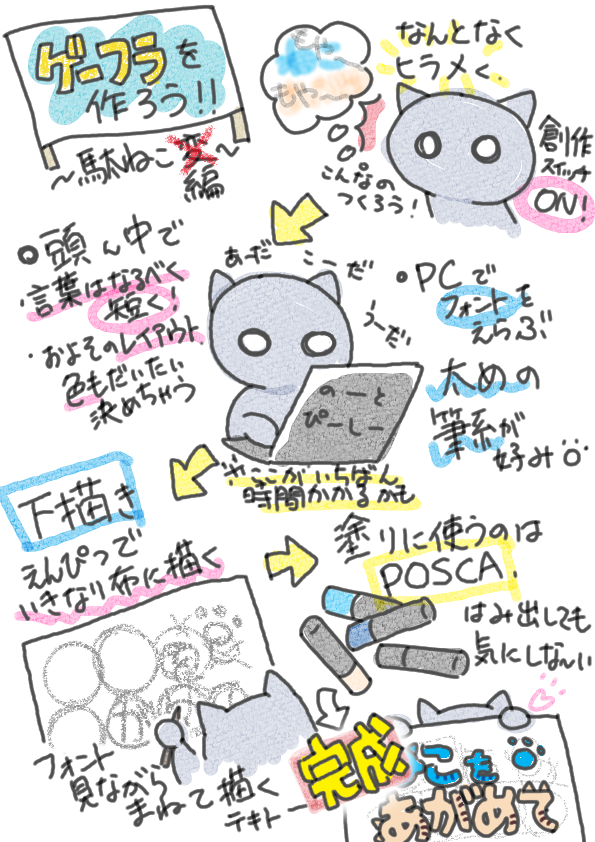 ゲーフラを
作ろう!!
〜駄ねこ変〜
編
もや〜
もや〜
なんとなく
ヒラメく.
こんなの
つくろう!
創作
スイッチ
ON!
頭ん中で
・言葉はなるべく
短く!
・およそのレイアウト
色もだいたい
決めちゃう
あーだ
こーだ
うーだい
のーと
ぴーしー
・PCで
フォントを
えらぶ
太めの
筆系が
好み
※ここがいちばん
時間かかるかも
下描き
えんぴつで
いきなり布に描く
フォント
見ながら
まねて描く
テキトー
塗りに使うのは
POSCA.
はみ出しても
気にしな〜い
完成
こを
あがめて